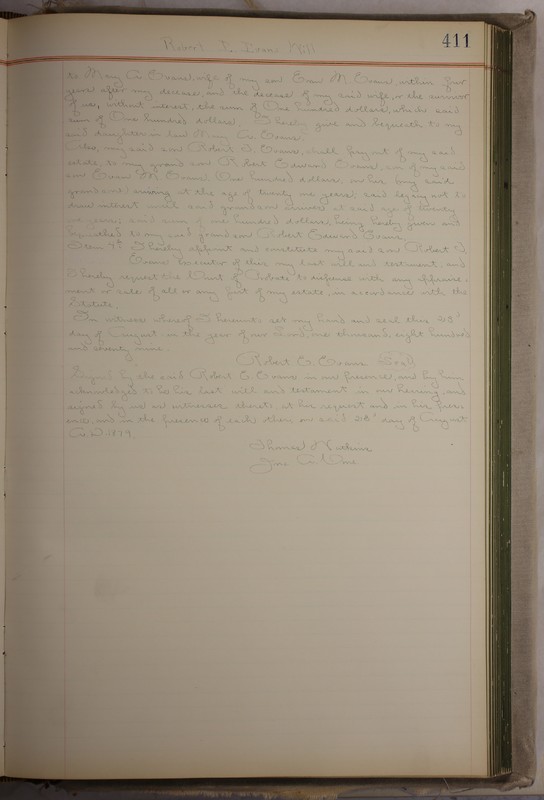 411
Robert E. Evans Will
to Mary A. Evans, wife of my son Evan M. Evans, within four
years after my decease, and the decease of my said wife, or the survivor
of us, without interest, the sum of One hundred dollars, which said
sum of One hundred dollars I hereby give and bequeath to my
said daughter in law Mary A. Evans.
Also, my said son Robert D. Evans, shall pay out of my said
estate, to my grand son Robert Edward Evans, son of my said
son Evan M. Evans, One hundred dollars, on his my said
grand son's arriving at the age of twenty one years; said legacy not to
draw interest until said grand son arrives at said age of twenty
one years; said sum of one hundred dollars being hereby given and
bequeathed to my said grand son Robert Edward Evans.
Item 9th I hereby appoint and constitute my said son Robert D.
Evans Executor of this, my last will and testament, and
I hereby request the Court of Probate to dispense with any appraise-
ment or sale of all or any part of my estate, in accordance with the
Statute.
In witness whereof I hereunto set my hand and seal this 28th
day of August in the year of our Lord, one thousand, eight hundred
and seventy nine.
Robert E. Evans Seal
Signed by the said Robert E. Evans in our presence, and by him
acknowledged to be his last will and testament in our hearing, and
signed by us as witnesses thereto at his request and in his pres-
ence, and in the presence of each other on said 28th day of August
A.D. 1879.
Thomas Watkins